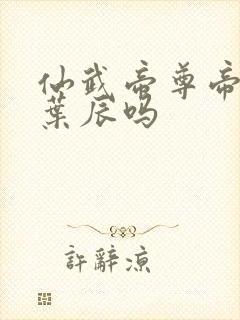 仙武帝尊帝
葉辰吗
許辭凉